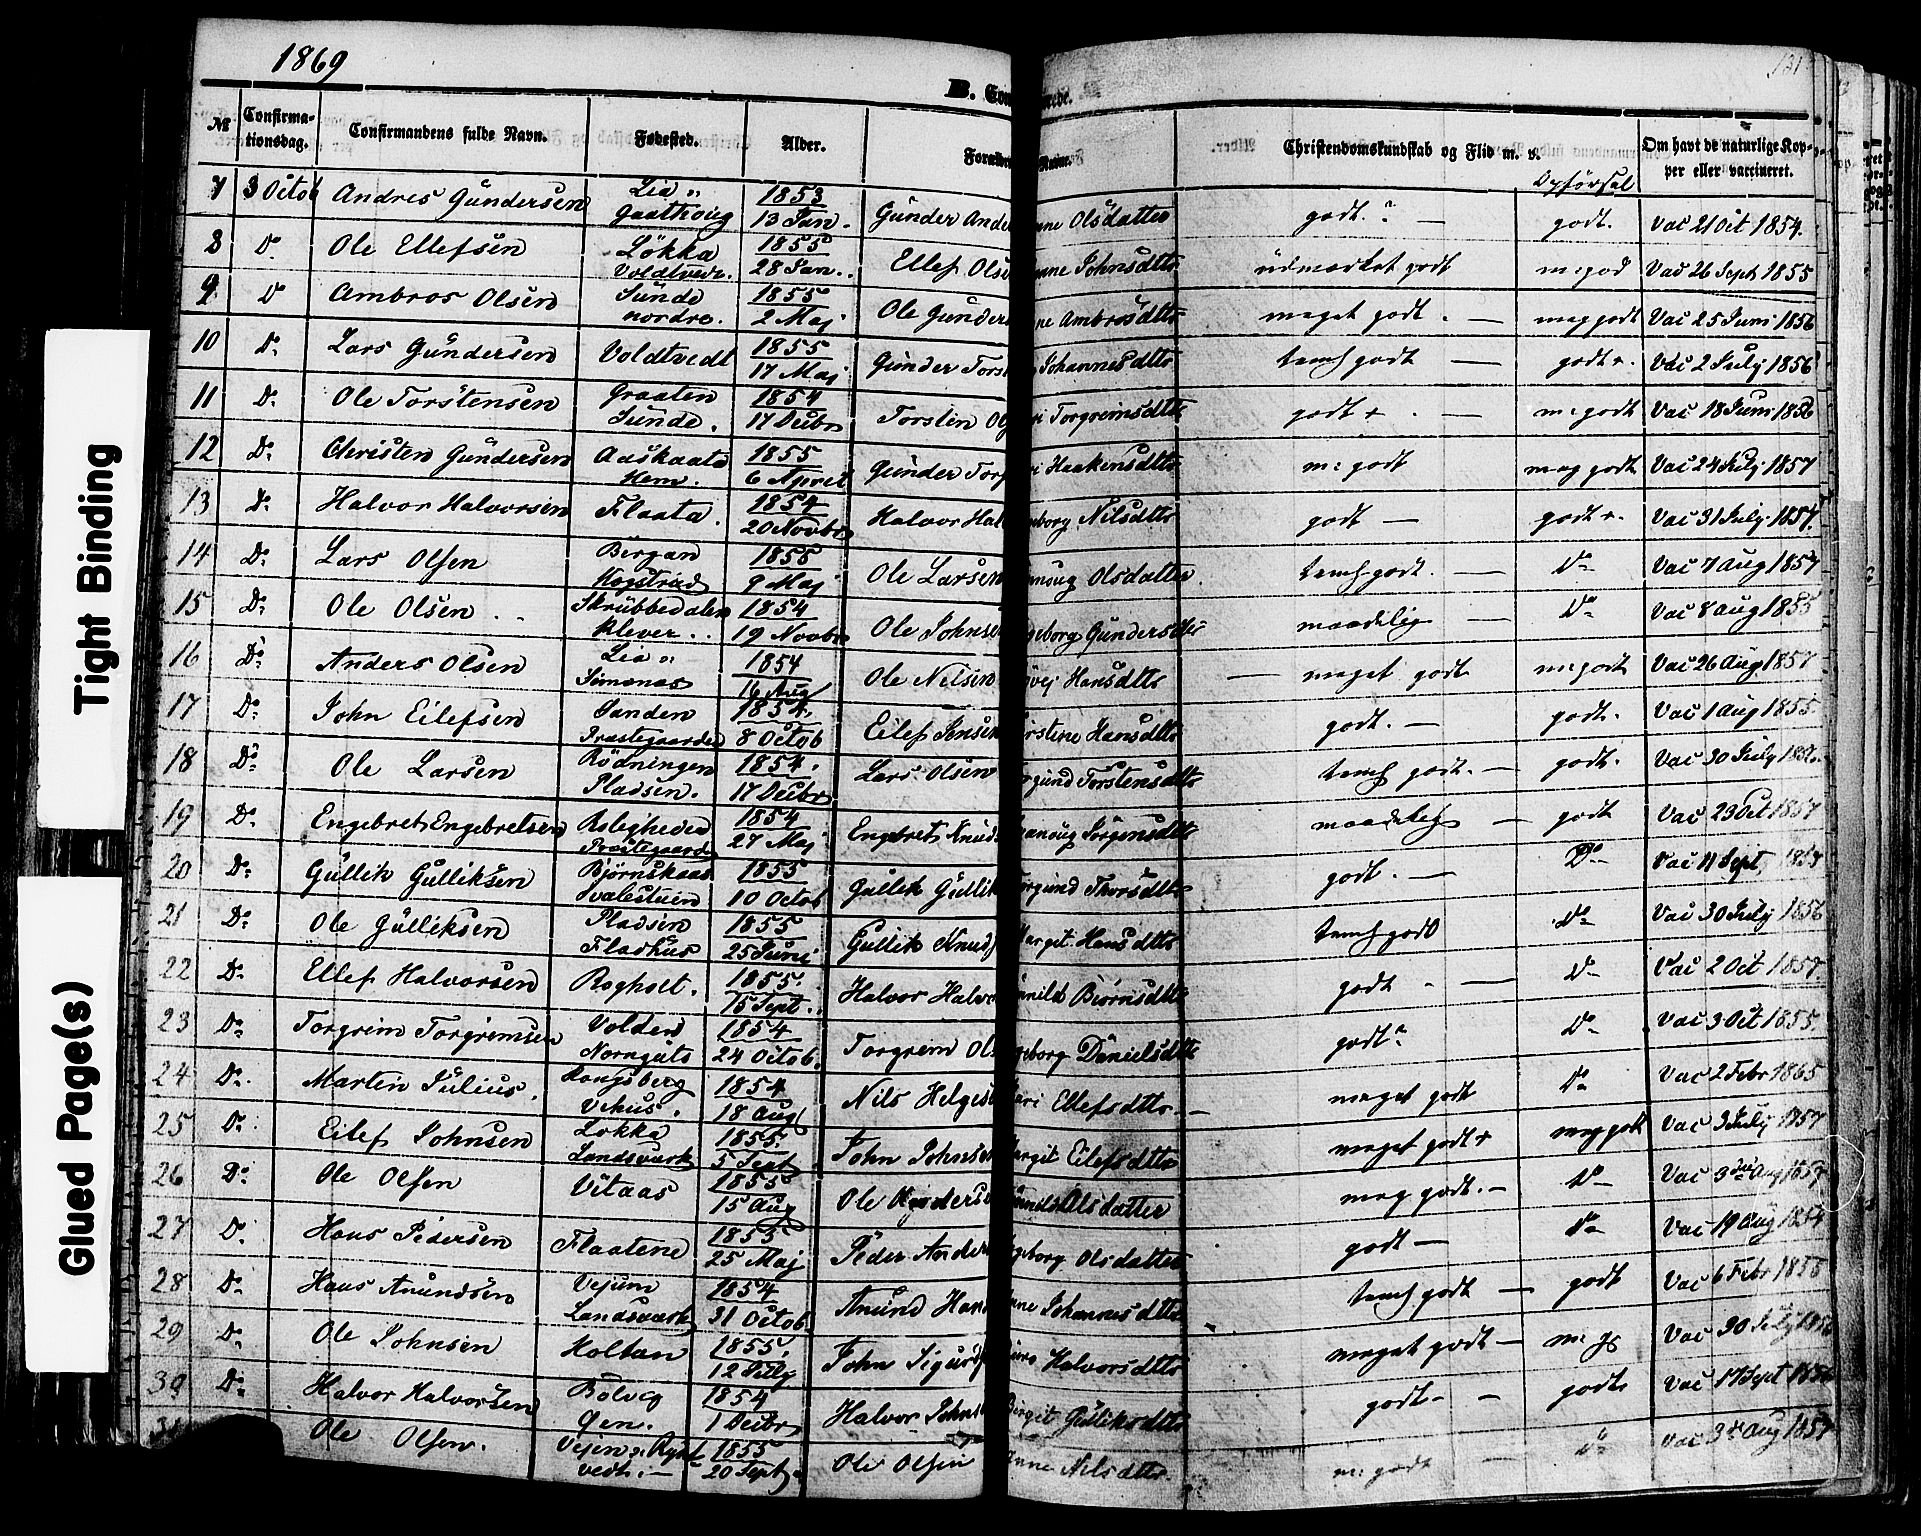 1869
B. Con rede.
131
№ Confirma-tionsdag. Confirmandens fulde Navn. Fødested. Alder. Foræld Navne. Christendomskundskab og Flid m. v. Opførsel Om havt de naturlige Kop-per eller vaccineret.
7 3 Octob Andres Gundersen Lia 1853 13 Jan. Gunder Ande nne Olsdatter godt. — godt. Vac 21 Oct 1854.
8 Do Ole Ellefsen Løkka Voldtvedt. 1855 28 Jan. Ellef Olse nne Johnsdtt udmærket godt m=god Vac 26 Sept 1855
9 Do Ambros Olsen Sunde nordre. 1855 2 Maj Ole Gunders ne Ambrosdtt meget godt. — meg godt Vac 25 Juni 1856
10 Do Lars Gundersen Voldtvedt 1855 17 Maj Gunder Torst Johannesdtt temh godt — godt +. Vac 2 July 1856
11 Do Ole Torstensen Graaten Sunde. 1854 17 Decbr Torsten Ol ri Torgreimsdtt godt + . — m=godt Vac 18 Juni 1856
12 Do Christen Gundersen Aaskaate Hem. 1855 6 April Gunder Tor ri Haakensdtt m=godt meg godt Vac 24 July 1857
13 Do Halvor Halvorsen Flaata. 1854 20 Novbr Halvor Hal geborg Nilsdtt godt — godt +. Vac 31 July 1857.
14 Do Lars Olsen Bergan Kogstrud 1855 9 Maj Ole Larsen Olsdatter. temh-godt. — Do Vac 7 Aug 1857
15 Do Ole Olsen Skrubbedalen Klever 1854 19 Novbr Ole Johnse geborg Gundersdtt maadelig — Do Vac 8 Aug 1855
16 Do Anders Olsen Lia Simonas 1854 16 Aug Ole Nilsen vej Hansdtt — meget godt m=godt Vac 26 Aug. 1857
17 Do John Eilefsen Sanden Præstegaarden 1854. 8 Octob Eilef Jensen rstine Hansdtt godt. — godt. Vac 1 Aug 1855.
18 Do Ole Larsen Rødningen Pladsen. 1854. 17 Decbr Lars Olsen rgund Torstensdtt temh godt. — godt. Vac 30 July 1856.
19 Do Engebret Engebretsen Præstegaarden 1854 27 Maj Engebret Knud Jørgensdtt maadelig — godt Vac 29 Oct 1857
20 Do Gullik Gulliksen Bjørnskaas Svalestuen 1855 10 Octob Gullik Gullik orgund Thorsdtt godt. — Do Vac 11 Sept,
21 Do Ole Gulliksen Pladsen Fladhus 1855 25 Juni Gullik Knuds argit Hansdtt temh godt Do Vac 30 July 1856
22 Do Ellef Halvorsen Rogholt. 1855. 15 Sept. Halvor Halvo unild Bjørnsdtt godt — Do Vac 2 Oct 1857
23 Do Torgrim Torgrimsen Volden Nornguts 1854 24 Octob. Torgrim Ols geborg Danielsdtt godt Do Vac 3 Oct 1855.
24 Do Martin Julius. Kongsberg Vehus. 1854 18 Aug Nils Helgese ari Ellefsdtt — meget godt Do Vac 2 Febr 1865
25 Do Eilef Johnsen Løkka Landsværk 1855. 5 Sept John Johnse argit Eilefsdtt meget godt + meg godt Vac 3 July 1857
26 Do Ole Olsen Vitaas 1855 15 Aug Ole unild Olsdatter meg godt. — Do Vac 3die Aug 1857
27 Do Hans Pedersen Flaatene 1855 25 Maj Peder Ander geborg Olsdatter godt — Do Vac 19 Aug
28 Do Hans Anundsen Vejum Landsværk 1854 31 Octob. Anund Hans nne Johannesdtt temh godt — godt Vac 6 Febr 1858
29 Do Ole Johnsen Holtan 1855. 12 July John Sigurds Halvorsdtt meget godt — m=g Vac 30 July 1856
30 Do Halvor Halvorsen Bolvig Øen. 1854 1 Decbr Halvor Johns Birgit Gulliksdtt godt — — godt Vac 17 Sept 1856
31 Ole Olsen. Vejen 1855 20 Sept. Ole Olsen Anne Nilsdtt m=godt Do Vac 3die Aug 1857
Tight Binding
Glued Page(s)